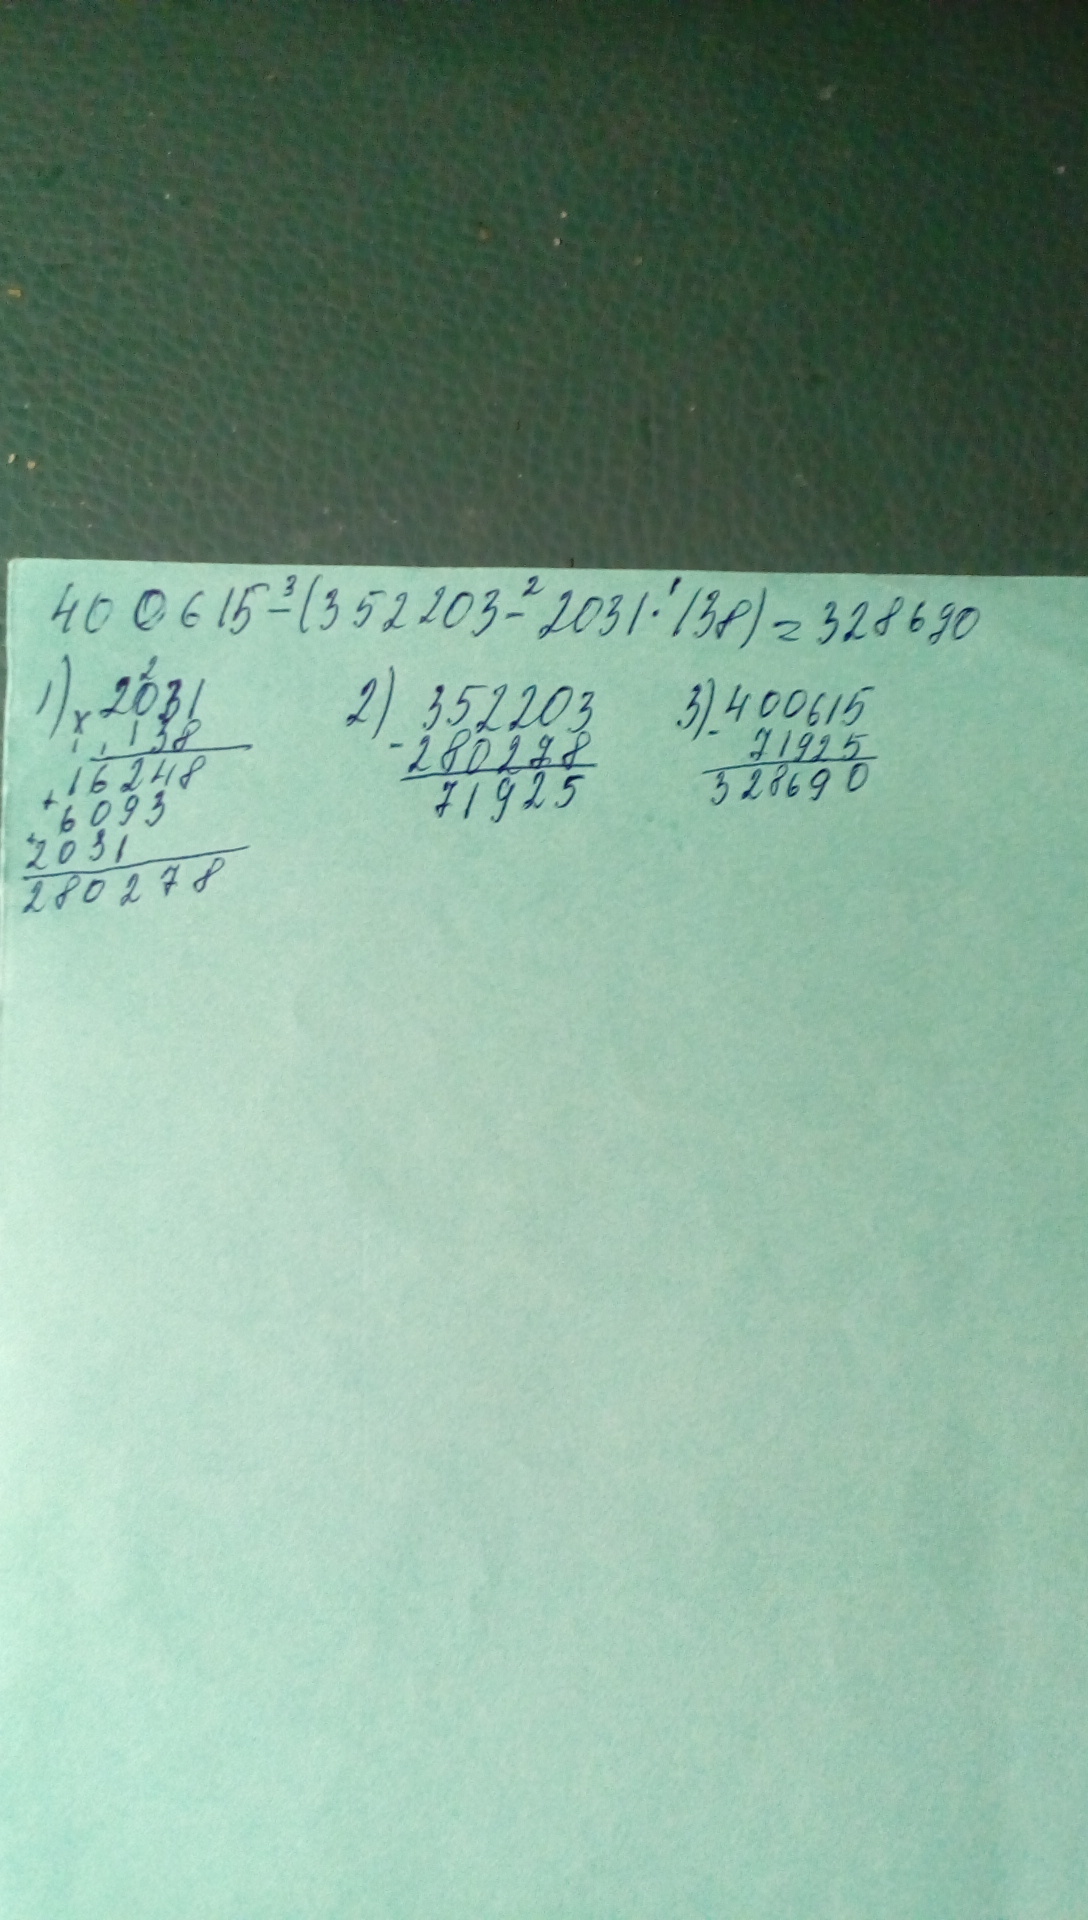 400615-³(352203-²2031·¹138)=328690
1) 2) 3)
2
×2031 352203 400615
138 -280278 -71925
16248 71925 328690
+6093
+2031
280278